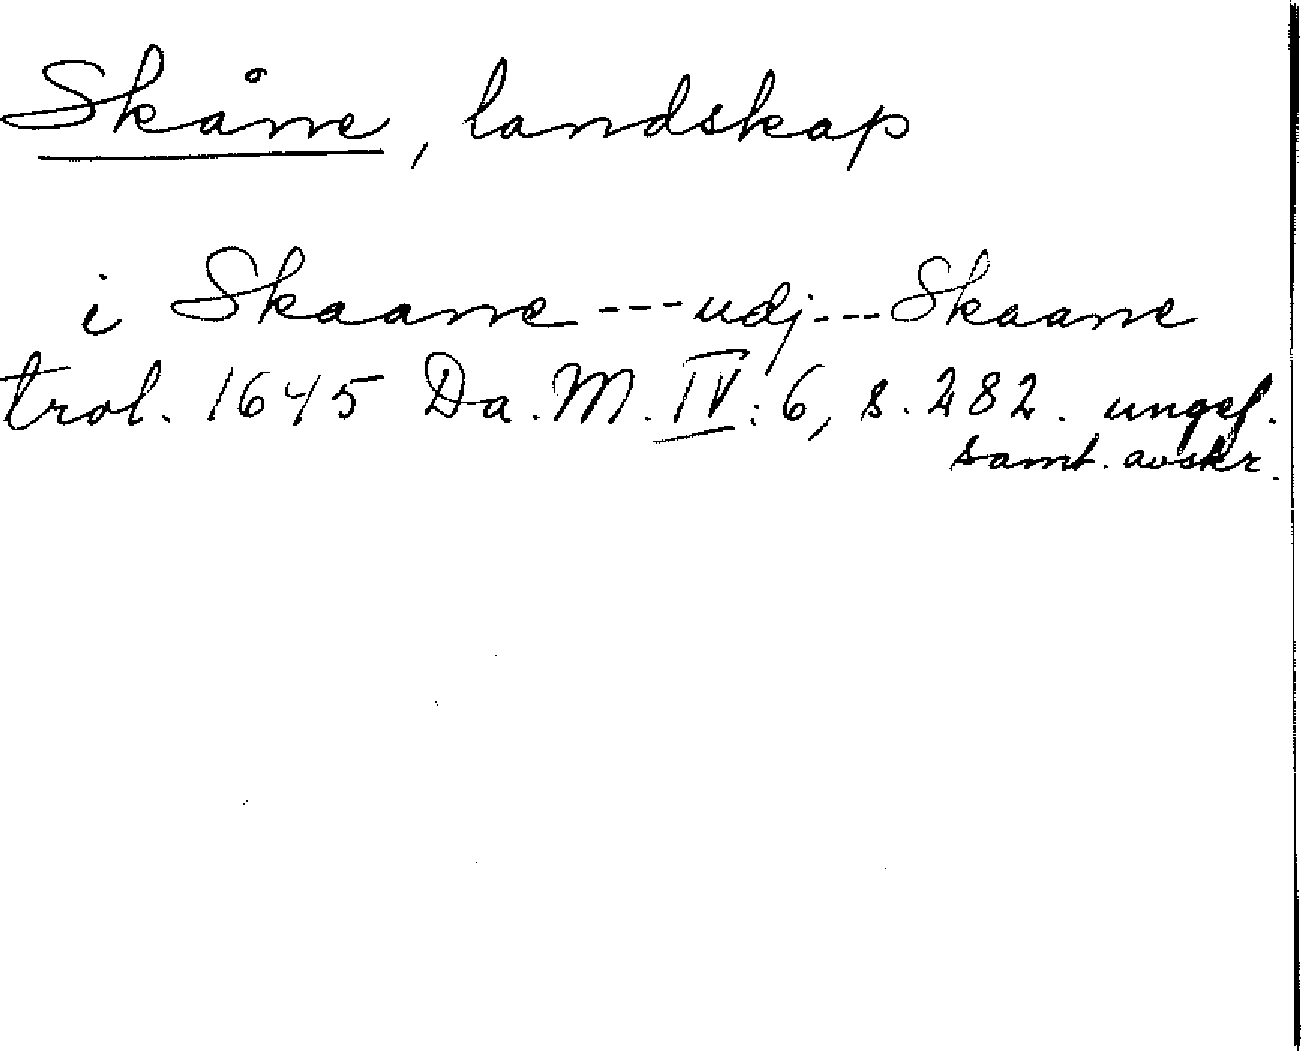 Skåne, landskap
i Skaane --- udj --- Skaane
trol. 1645 Da. M. IV: 6, s. 282. ungef.
samt. avskr.